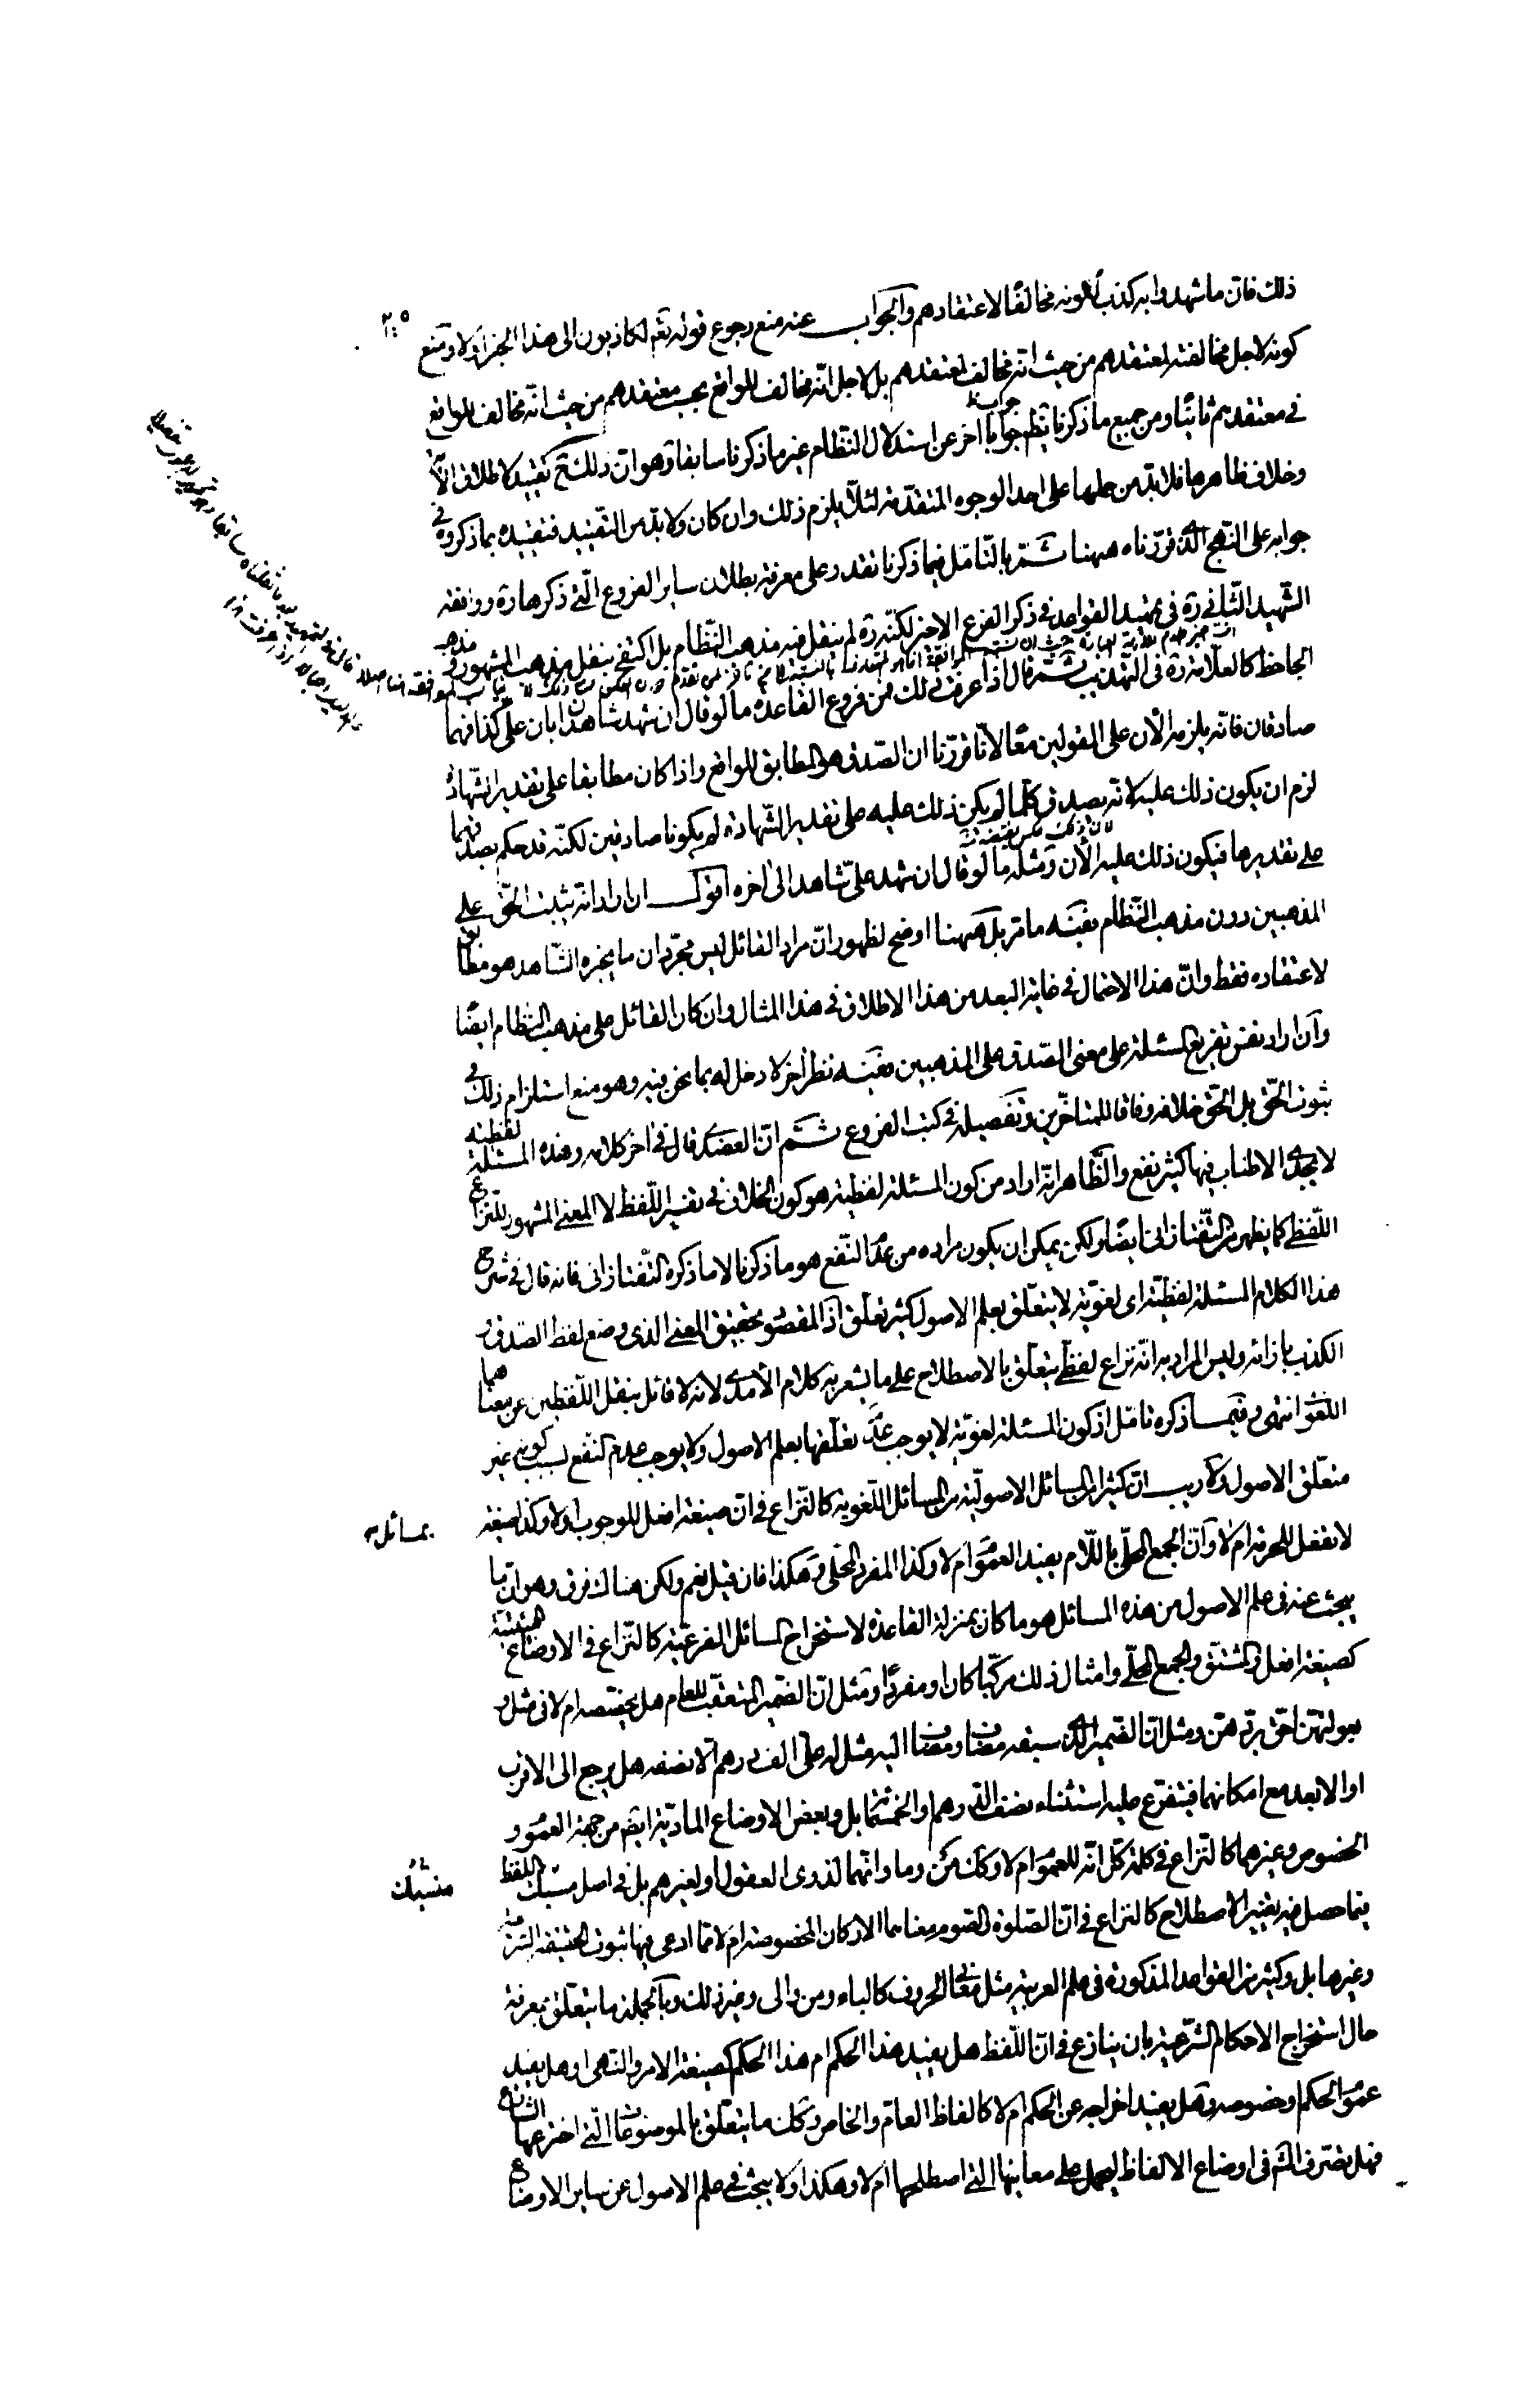 ٢٠٥
ذلك فان ما شهدوا به كذب لكونه مخالفًا لاعتقادهم والجواب عنه منع رجوع قوله تعٓ لكاذبون الى هذا الخبر اولا ومنع
كونه لاجل مخالفته لمعتقدهم من حيث انه مخالف لمعتقدهم بل لاجل انه مخالف للواقع بحسب معتقدهم من حيث انّه مخالف للواقع
في معتقدهم ثانيًا ومن جميع ما ذكرنا يظهر جواب اخر عن استدلال النظام غير ما ذكرنا سابقا وهو ان ذلك تقييد لاطلاق الآية
وخلاف ظاهرها فلابد من حملها على احد الوجوه المتقدّمة لئلّا يلزم ذلك وان كان ولابدّ من التقييد فتقييده بما ذكروه في
جوابه على النّهج الذى قرّرناه ههنا ثمّ بالتّامّل فيما ذكرنا تقدر على معرفة بطلان ساير الفروع الّتى ذكرها ره ووافقه
الشّهيد الثّانى ره في تمهيد القواعد في ذكر الفرع الاخير لكنّه ره لم ينقل فيه مذهب النّظام بل اكتفى بنقل مذهب المشهور ومذهب
الجاحظ كالعلامة ره في التّهذيب ثمّ قال اذا عرفت ذلك فمن فروع القاعدة ما لو قال ان شهد شاهدان بان علىّ كذا فهما
صادقان فانّه يلزمه الآن على القولين معًا لانّا قرّرنا ان الصّدق هو المطابق للواقع واذا كان مطابقا على تقدير الشّهادة
لزم ان يكون ذلك عليه لانّه يصدق كلّما لم يكن ذلك عليه على تقدير الشّهادة لم يكونا صادقين لكنّه قد حكم بصدقهما
على تقديرها فيكون ذلك عليه الآن ومثله ما لو قال ان شهد علىّ شاهد الى اخره اقول ان اراد انه يثبت الحقّ على
المذهبين دون مذهب النّظام ففيه ما مرّ بل ههنا اوضح لظهور انّ مراد القائل ليس مجرّد ان ما يخبره الشّاهد هو مطابق
لاعتقاده فقط وانّ هذا الاحتمال في غاية البعد من هذا الاطلاق في هذا المثال وان كان القائل على مذهب النّظام ايضًا
وان اراد نفس تفريع المسئلة على معنى الصّدق على المذهبين ففيه نظر اخر لا دخل له بما نحن فيه وهو منع استلزام ذلك في
ثبوت الحقّ بل الحقّ خلافه وفاقا للمتاخّرين وتفصيله في كتب الفروع ثمّ انّ العضدى قال في اخر كلامه وهذه المسئلة لفظية
لا يجدى الاطناب فيها كثير نفع والظّاهر انّه اراد من كون المسئلة لفظية هو كون الخلاف في تفسير اللّفظ لا المعنى المشهور للنّزاع
اللّفظى كما يظهر من التّفتازانى ايضًا ولكن يمكن ان يكون مراده من عدم النّفع هو ما ذكرنا لا ما ذكره التّفتازانى فانه قال في شرح
هذا الكلام المسئلة لفظيّة اى لغويّة لا يتعلّق بعلم الاصول كثير تعلّق اذ المقصود تحقيق المعنى الذى وضع لفظ الصّدق و
الكذب بازائه وليس المراد به انّه نزاع لفظىّ يتعلّق بالاصطلاح على ما يشعر به كلام الآمدى لانه لا قائل بنقل اللّفظين عن معناهما
اللغوى انتهى وفيما ذكره تامّل اذ كون المسئلة لغويّة لا يوجب عدم تعلّقها بعلم الاصول ولا يوجب عدم النّفع بسبب كونه غير
متعلّق الاصول ولا ريب انّ كثيرا من المسائل الاصوليّة من المسائل اللّغوية كالنّزاع في انّ صيغة افعل للوجوب اولا وكذا صيغة
بمسائل
لا تفعل للحرمة ام لا وانّ الجمع المحلّى باللّام يفيد العموم ام لا وكذا المفرد المحلّى وهكذا فان قيل نعم ولكن هناك فرق وهو انّ ما
يبحث عنه في علم الاصول من هذه المسائل هو ما كان بمنزلة القاعدة لاستخراج المسائل الفرعيّة كالنّزاع في الاوضاع الهيئيّة
كصيغة افعل والمشتق والجمع المحلّى وامثال ذلك مركّبا كان او مفردًا ومثل انّ الضّمير المتعقّب للعام هل يخصّصه ام لا في مثل و
بعولتهنّ احق بردّهنّ ومثل انّ الضّمير الذى سبقه مضاف ومضاف اليه مثل له علىّ الف درهم الّا نصفه هل يرجع الى الاقرب
او الابعد مع امكانهما فيتفرّع عليه استثناء نصف الدّرهم او الخمسمائة بل وبعض الاوضاع المادّية ايضا من جهة العموم و
الخصوص وغيرهما كالنّزاع في كلمة كلّ انّه للعموم ام لا وكذا من وما وانّهما لذوى العقول او لغيرهم بل في اصل اللفظ
فيما حصل فيه تغيير الاصطلاح كالنزاع في انّ الصّلوة والصّوم معناهما الاركان المخصوصة ام لا ممّا ادعى فيها ثبوت الحقيقة الشّرعية
وغيرها بل وكثير من القواعد المذكورة في علم العربية مثل معانى الحروف كالباء ومن والى وغير ذلك وبالجملة ما يتعلّق بمعرفة
حال استخراج الاحكام الشّرعية بان ينازع في انّ اللّفظ هل يفيد هذا الحكم ام هذا الحكم كصيغة الامر والنّهى او هل يفيد
عموم الحكم او خصوصه وهل يفيد اخراجه عن الحكم ام لا كالفاظ العامّ والخاص وكذا ما يتعلّق بالموضوعات الّتى اخترعها الشارع
فهل تصرّف الشّ في اوضاع الالفاظ ليحمل على معانيها التى اصطلحها ام لا وهكذا ولا يبحث في علم الاصول عن ساير الاوضاع